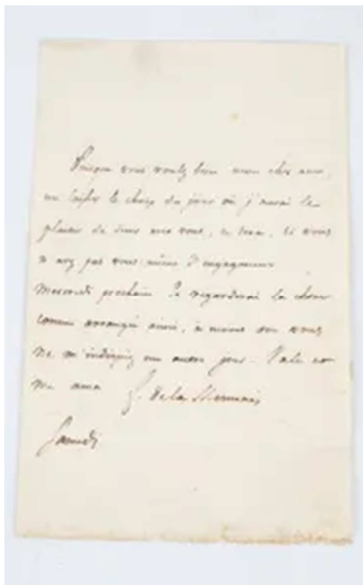 Puisque vous voulez bien mon cher ami,
me laisser le choix du jour où j'aurai le
plaisir de diner avec vous, ce sera, si vous
n'avez pas vous même d'engagement
Mercredi prochain. Je regarderai la chose
comme arrangée ainsi, à moins que vous
ne m'indiquiez un autre jour. Vale et
me ama F. de la Mennais
Samedi